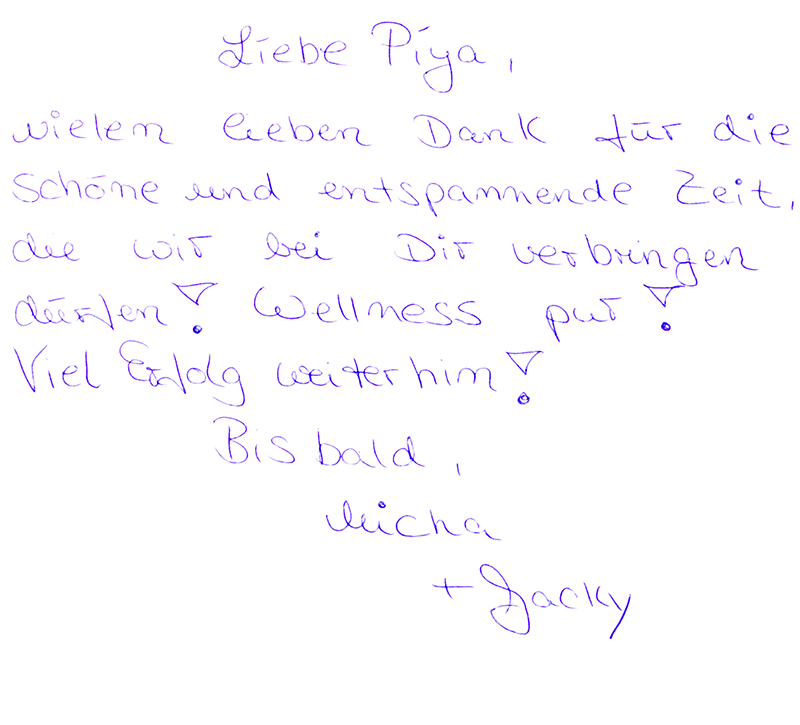 Liebe Piya,
vielen lieben Dank für die
schöne und entspannende Zeit,
die wir bei Dir verbringen
dürfen! Wellness pur!
Viel Erfolg weiterhin!
Bis bald,
Micha
+ Jacky